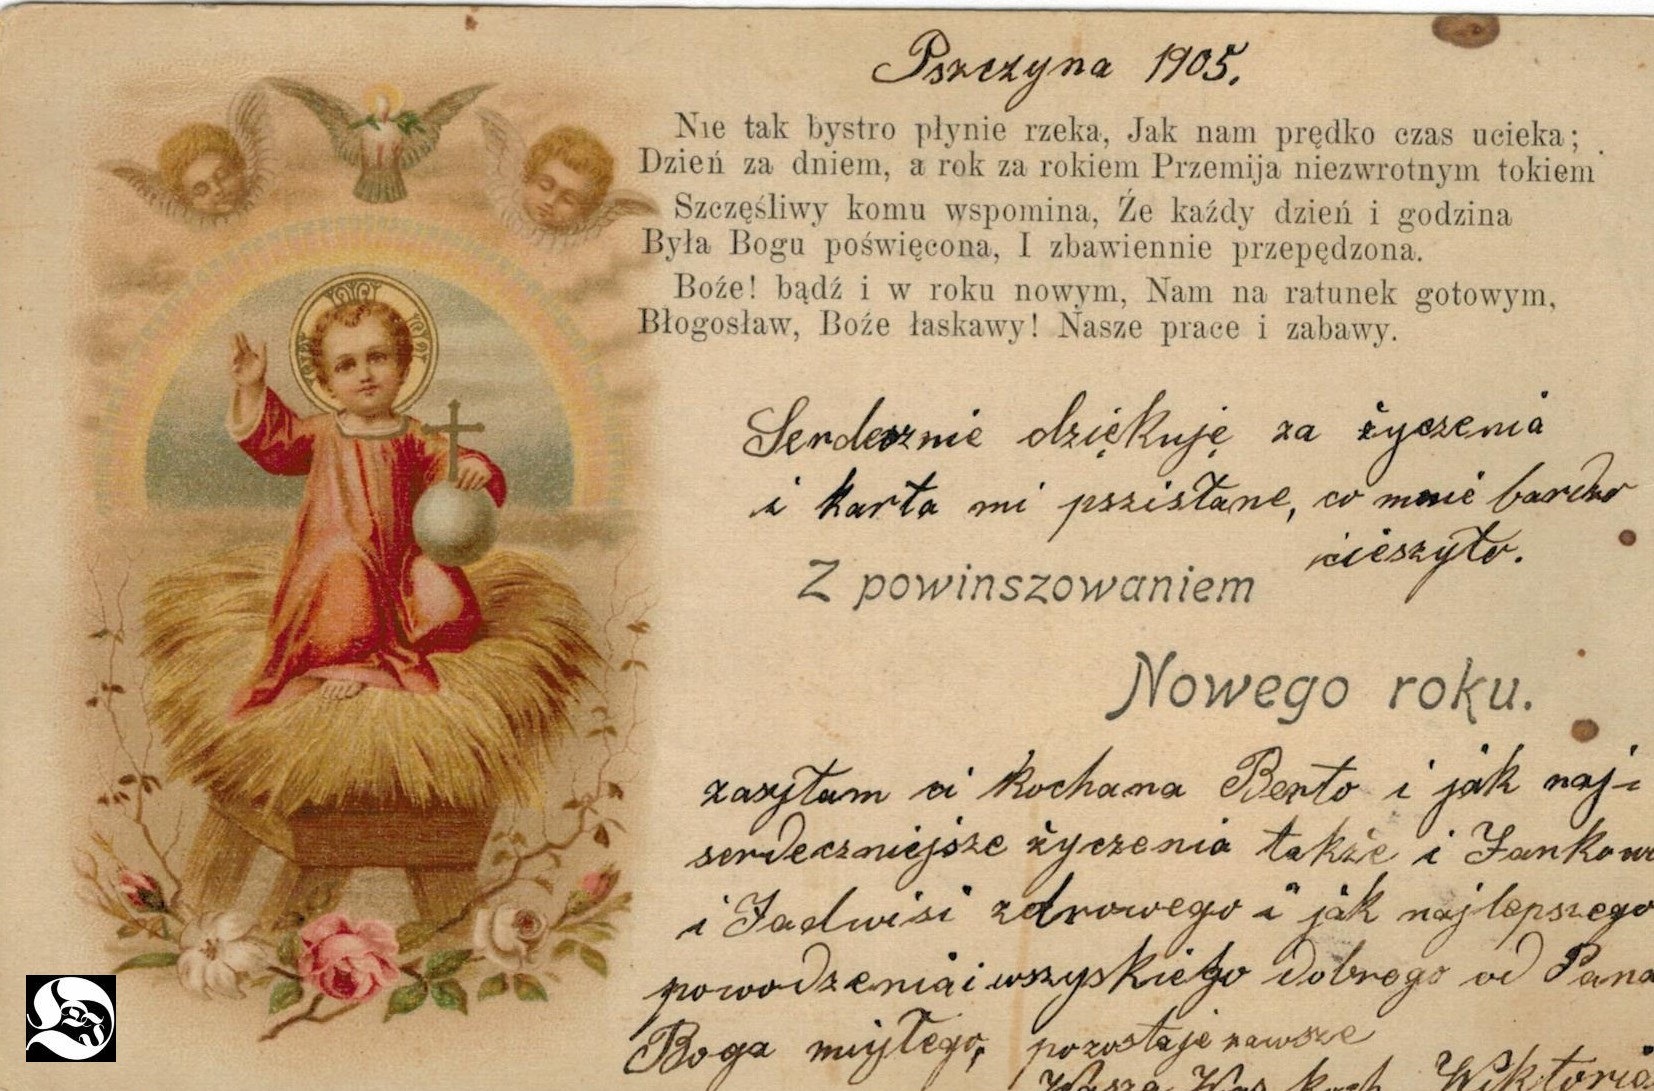 Pszczyna 1905.
Nie tak bystro płynie rzeka, Jak nam prędko czas ucieka;
Dzień za dniem, a rok za rokiem Przemija niezwrotnym tokiem
Szczęśliwy komu wspomina, Źe kaźdy dzień i godzina
Była Bogu poświęcona, I zbawiennie przepędzona.
Boźe! bądź i w roku nowym, Nam na ratunek gotowym,
Błogosław, Boźe łaskawy! Nasze prace i zabawy.
Serdecznie dziękuję za życzenia
i karta mi pszisłane, co mnie bardzo
cieszyło.
Z powinszowaniem
Nowego roku.
zasyłam ci kochana Berto i jak naj-
serdeczniejsze życzenia także i Jankowi
i Jadwisi zdrowego i jak najlepszego
powodzenia i wszyskiego dobrego od Pana
Boga miyłego, pozostaje nawsze
Wasza Was koch. Wiktoria